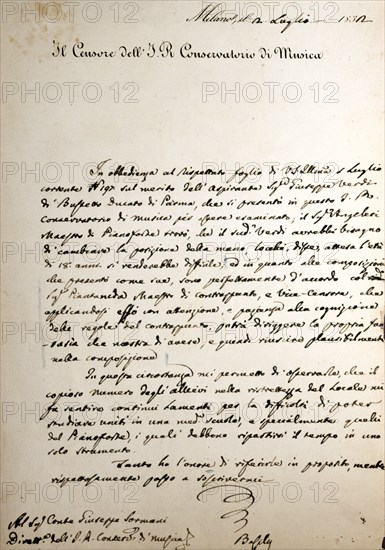 Milano, il 2 Luglio 1832
Il Censore dell'I. R. Conservatorio di Musica
In obbedienza al rispettato foglio di V. S. Ill.ma Luglio
corrente N° 97 sul merito dell'Aspirante Sig.r Giuseppe Verdi
di Busseto Ducato di Parma, che si presentò in questo I. R.
Conservatorio di musica per essere esaminato, il Sig.r Angeleri
Maestro di Pianoforte trovò, che il sud.º Verdi avrebbe bisogno
di cambiare la posizione della mano locchè, disse, attesa l'età
di 18 anni si renderebbe difficile, ed in quanto alle composizioni
che presentò come sue, sono perfettamente d'accordo col
Sig.r Piantanida Maestro di contrappunto, e Vice-Censore, che
applicandosi esso con attenzione, e pazienza alla cognizione
delle regole del contrappunto, potrà diriggere la propria fan-
tasia che mostra d'avere, e quindi riuscire plausibilmente
nella composizione
In questa circostanza mi permetto di osservarle, che il
copioso numero degli allievi nella ristrettezza del Locale mi
fa sentire continui lamenti per la difficoltà di poter
studiare uniti in una med.ª scuola, e specialmente quelli
del Pianoforte, i quali debbono ripartirsi il tempo in uno
solo strumento.
Tanto ho l'onore di riferirle in proposito, mentre
rispettosamente passo a soscrivermi
Basily
Al Sig.r Conte Giuseppe Sormani
Dirett.e dell'I. R. Conserv.º di musica
PHOTO 12